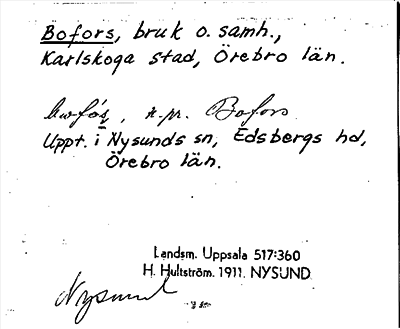 Bofors, bruk o. samh.,
Karlskoga stad, Örebro län.
n. pr. Bofors
Uppt. i Nysunds sn, Edsbergs hd,
Örebro län.
Landsm. Uppsala 517:360
H. Hultström. 1911. NYSUND.
Nysund